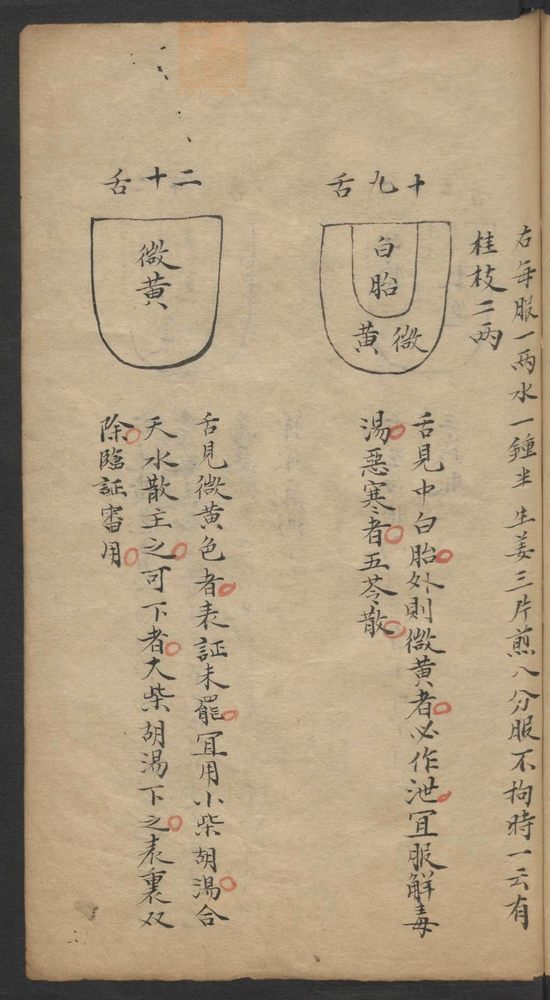 右每服一両水一鍾半生姜三片煎八分服不拘時一云有
桂枝二両
十九舌
白胎
微黄
舌見中白胎外則微黄者必作泄宜服解毒
湯惡寒者五苓散
二十舌
微黄
舌見微黄色者表証未罷宜用小柴胡湯合
天水散主之可下者大柴胡湯下之表裏双
除臨証審用